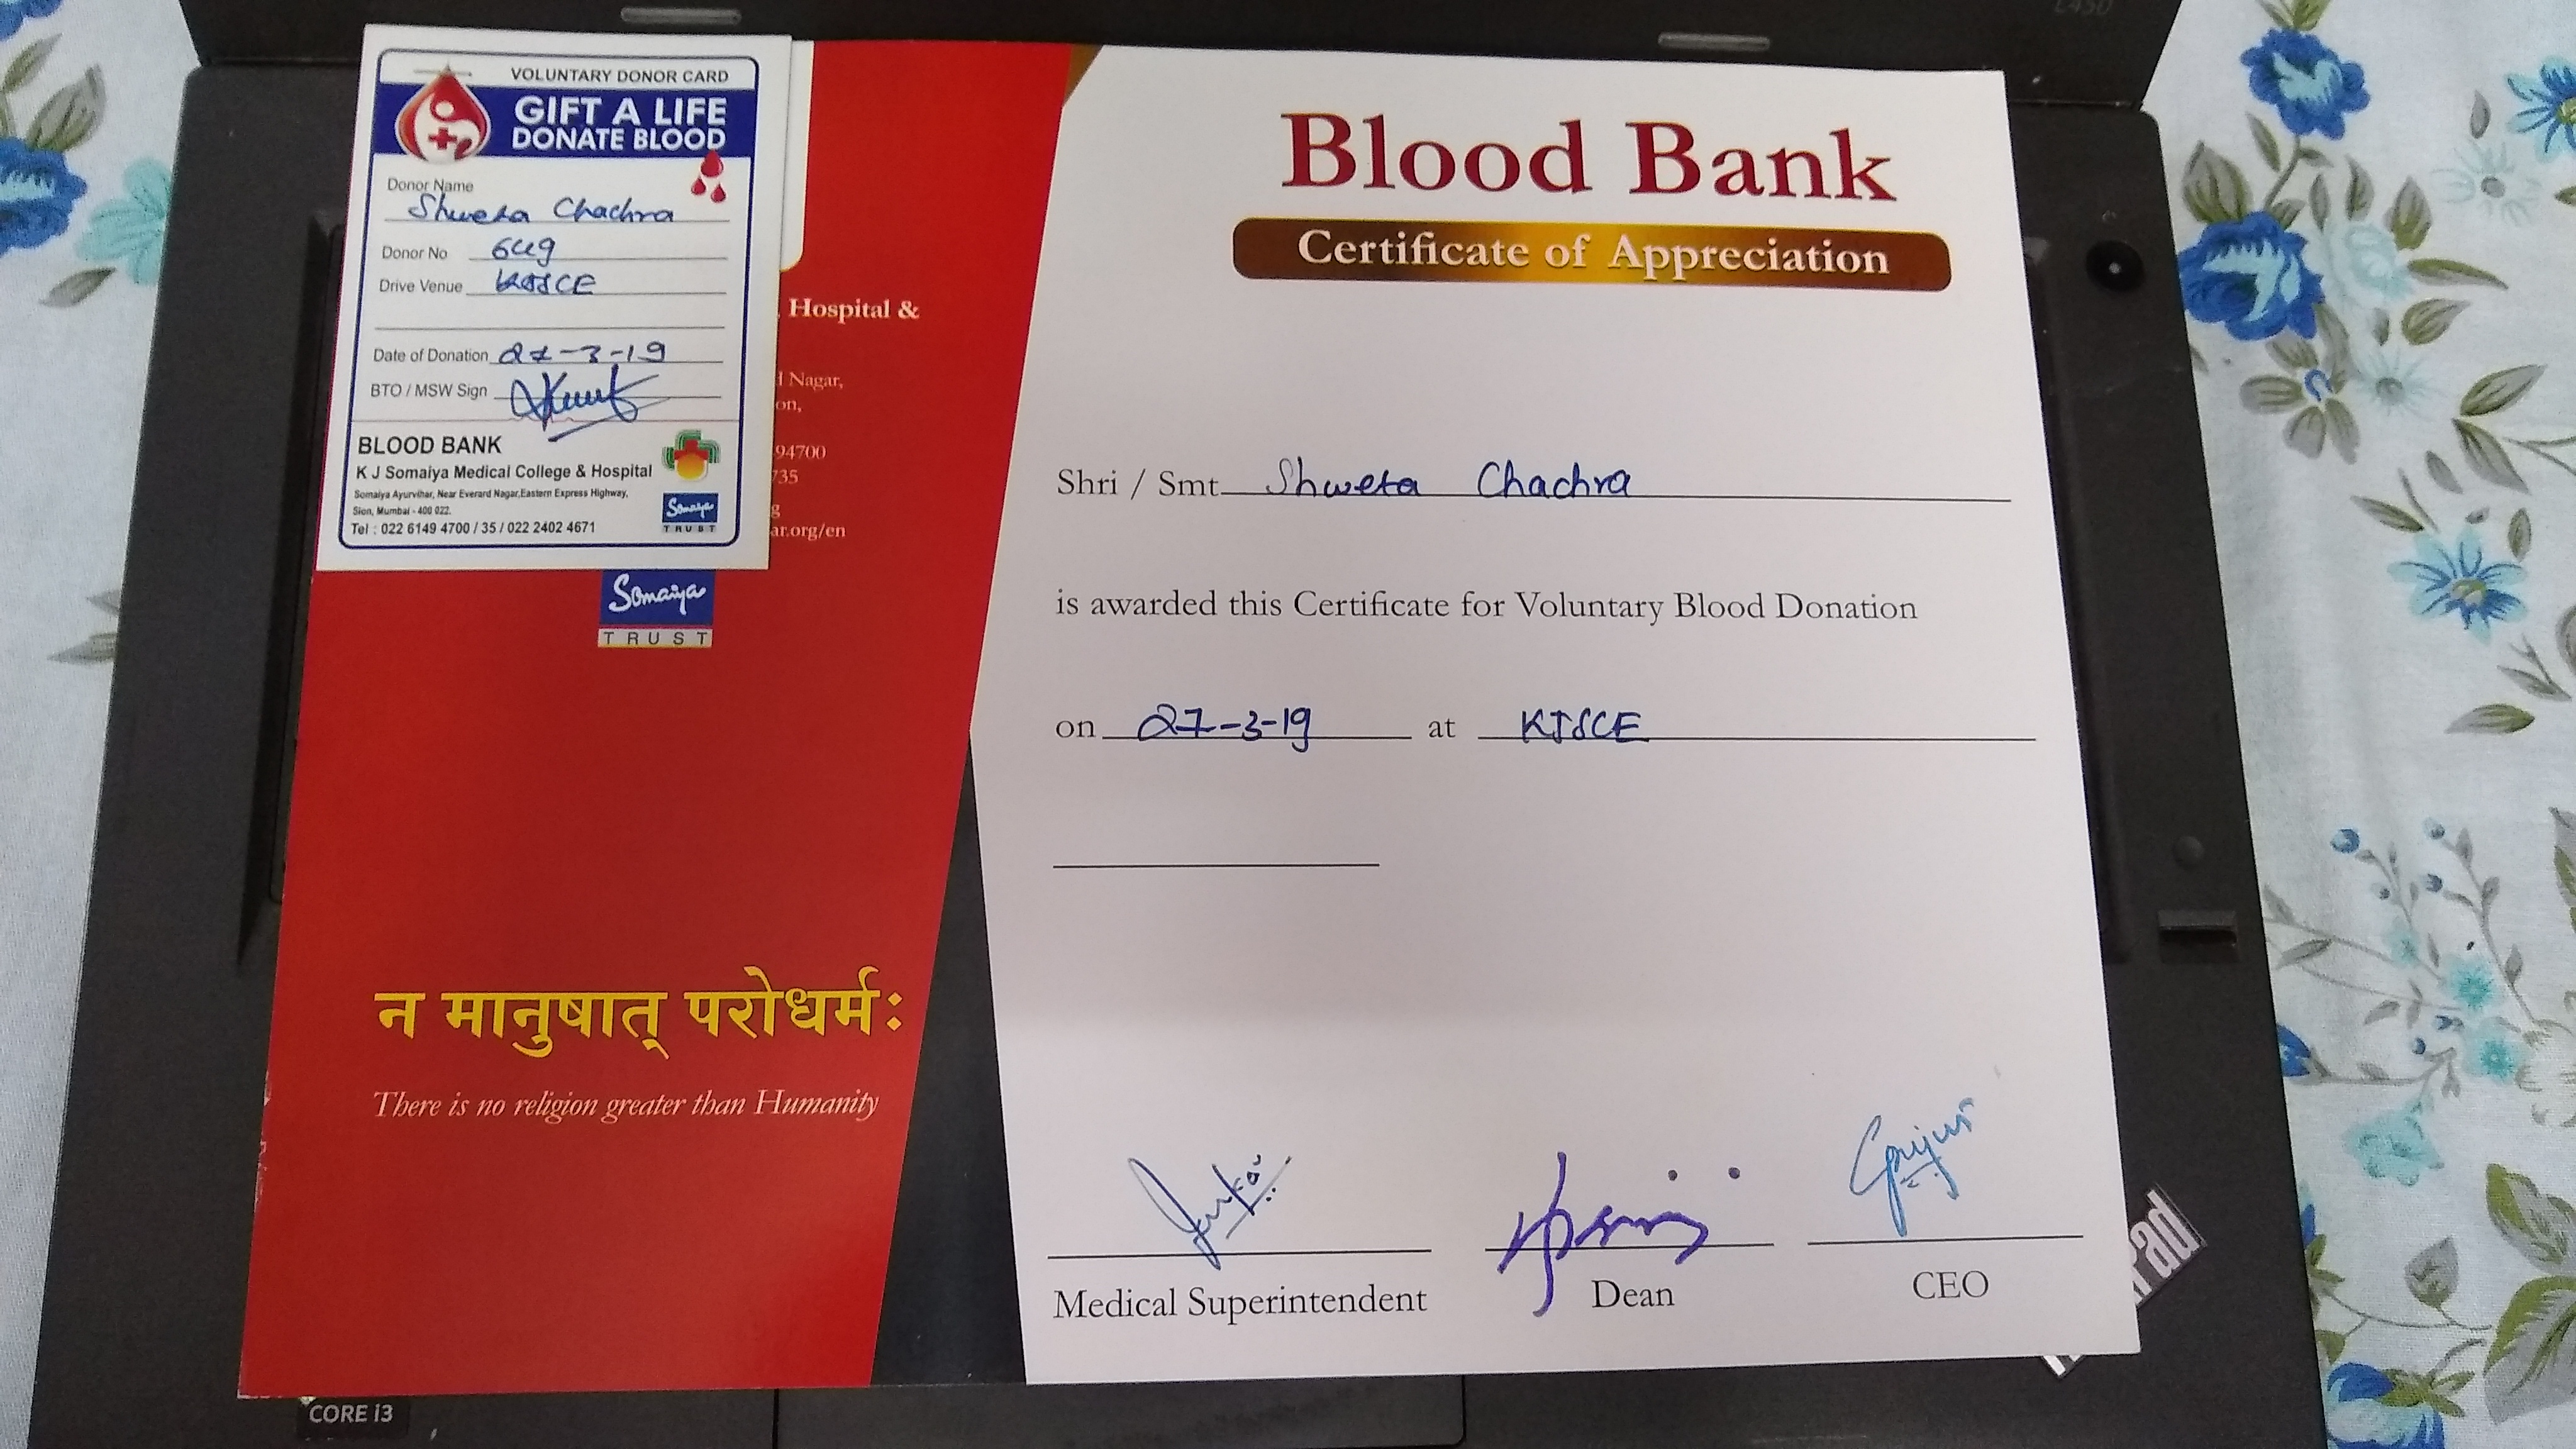 VOLUNTARY DONOR CARD
GIFT A LIFE
DONATE BLOOD
Donor Name
Shweta Chachra
Donor No 649
Drive Venue KJSCE
Date of Donation 27-3-19
BTO / MSW Sign
BLOOD BANK
K J Somaiya Medical College & Hospital
Somaiya Ayurvihar, Near Everard Nagar, Eastern Express Highway,
Sion, Mumbai - 400 022.
Tel : 022 6149 4700 / 35 / 022 2402 4671
Somaiya
TRUST
Hospital &
Nagar,
on,
94700
735
g
ar.org/en
Somaiya
TRUST
न मानुषात् परोधर्मः
There is no religion greater than Humanity
Blood Bank
Certificate of Appreciation
Shri / Smt Shweta Chachra
is awarded this Certificate for Voluntary Blood Donation
on 27-3-19 at KJSCE
Medical Superintendent
Dean
CEO
CORE i3
L450